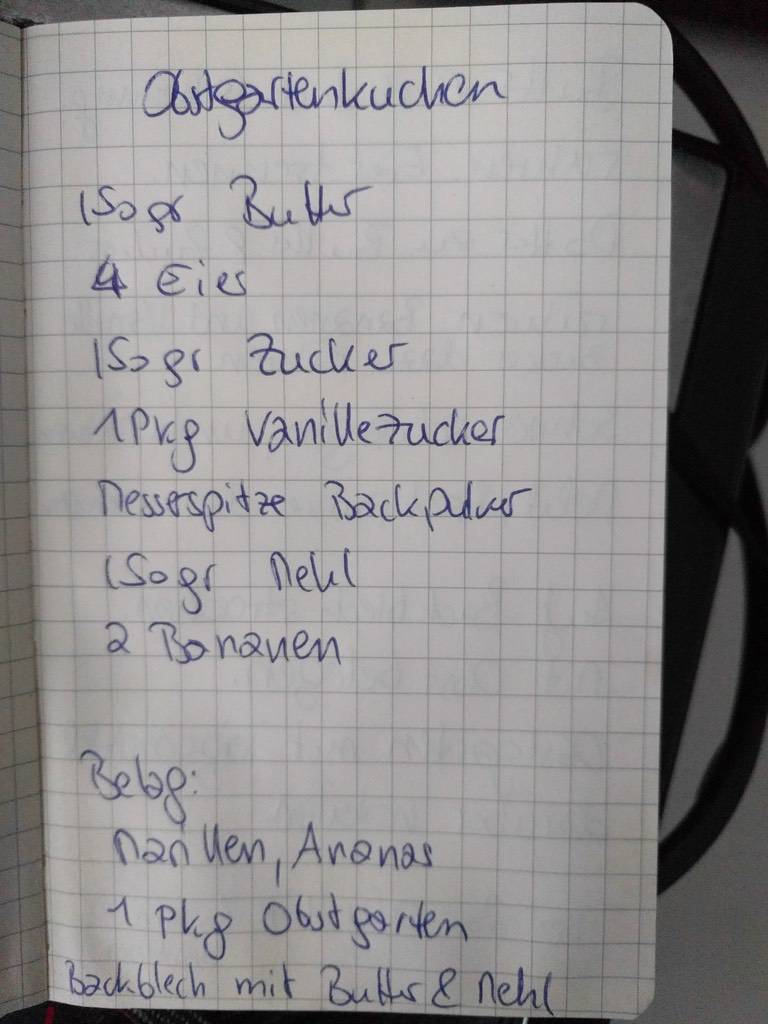 Obstgartenkuchen
150 gr Butter
4 Eier
150 gr Zucker
1 Pkg Vanillezucker
Messerspitze Backpulver
150 gr Mehl
2 Bananen
Belag:
Marillen, Ananas
1 Pkg Obstgarten
Backblech mit Butter & Mehl